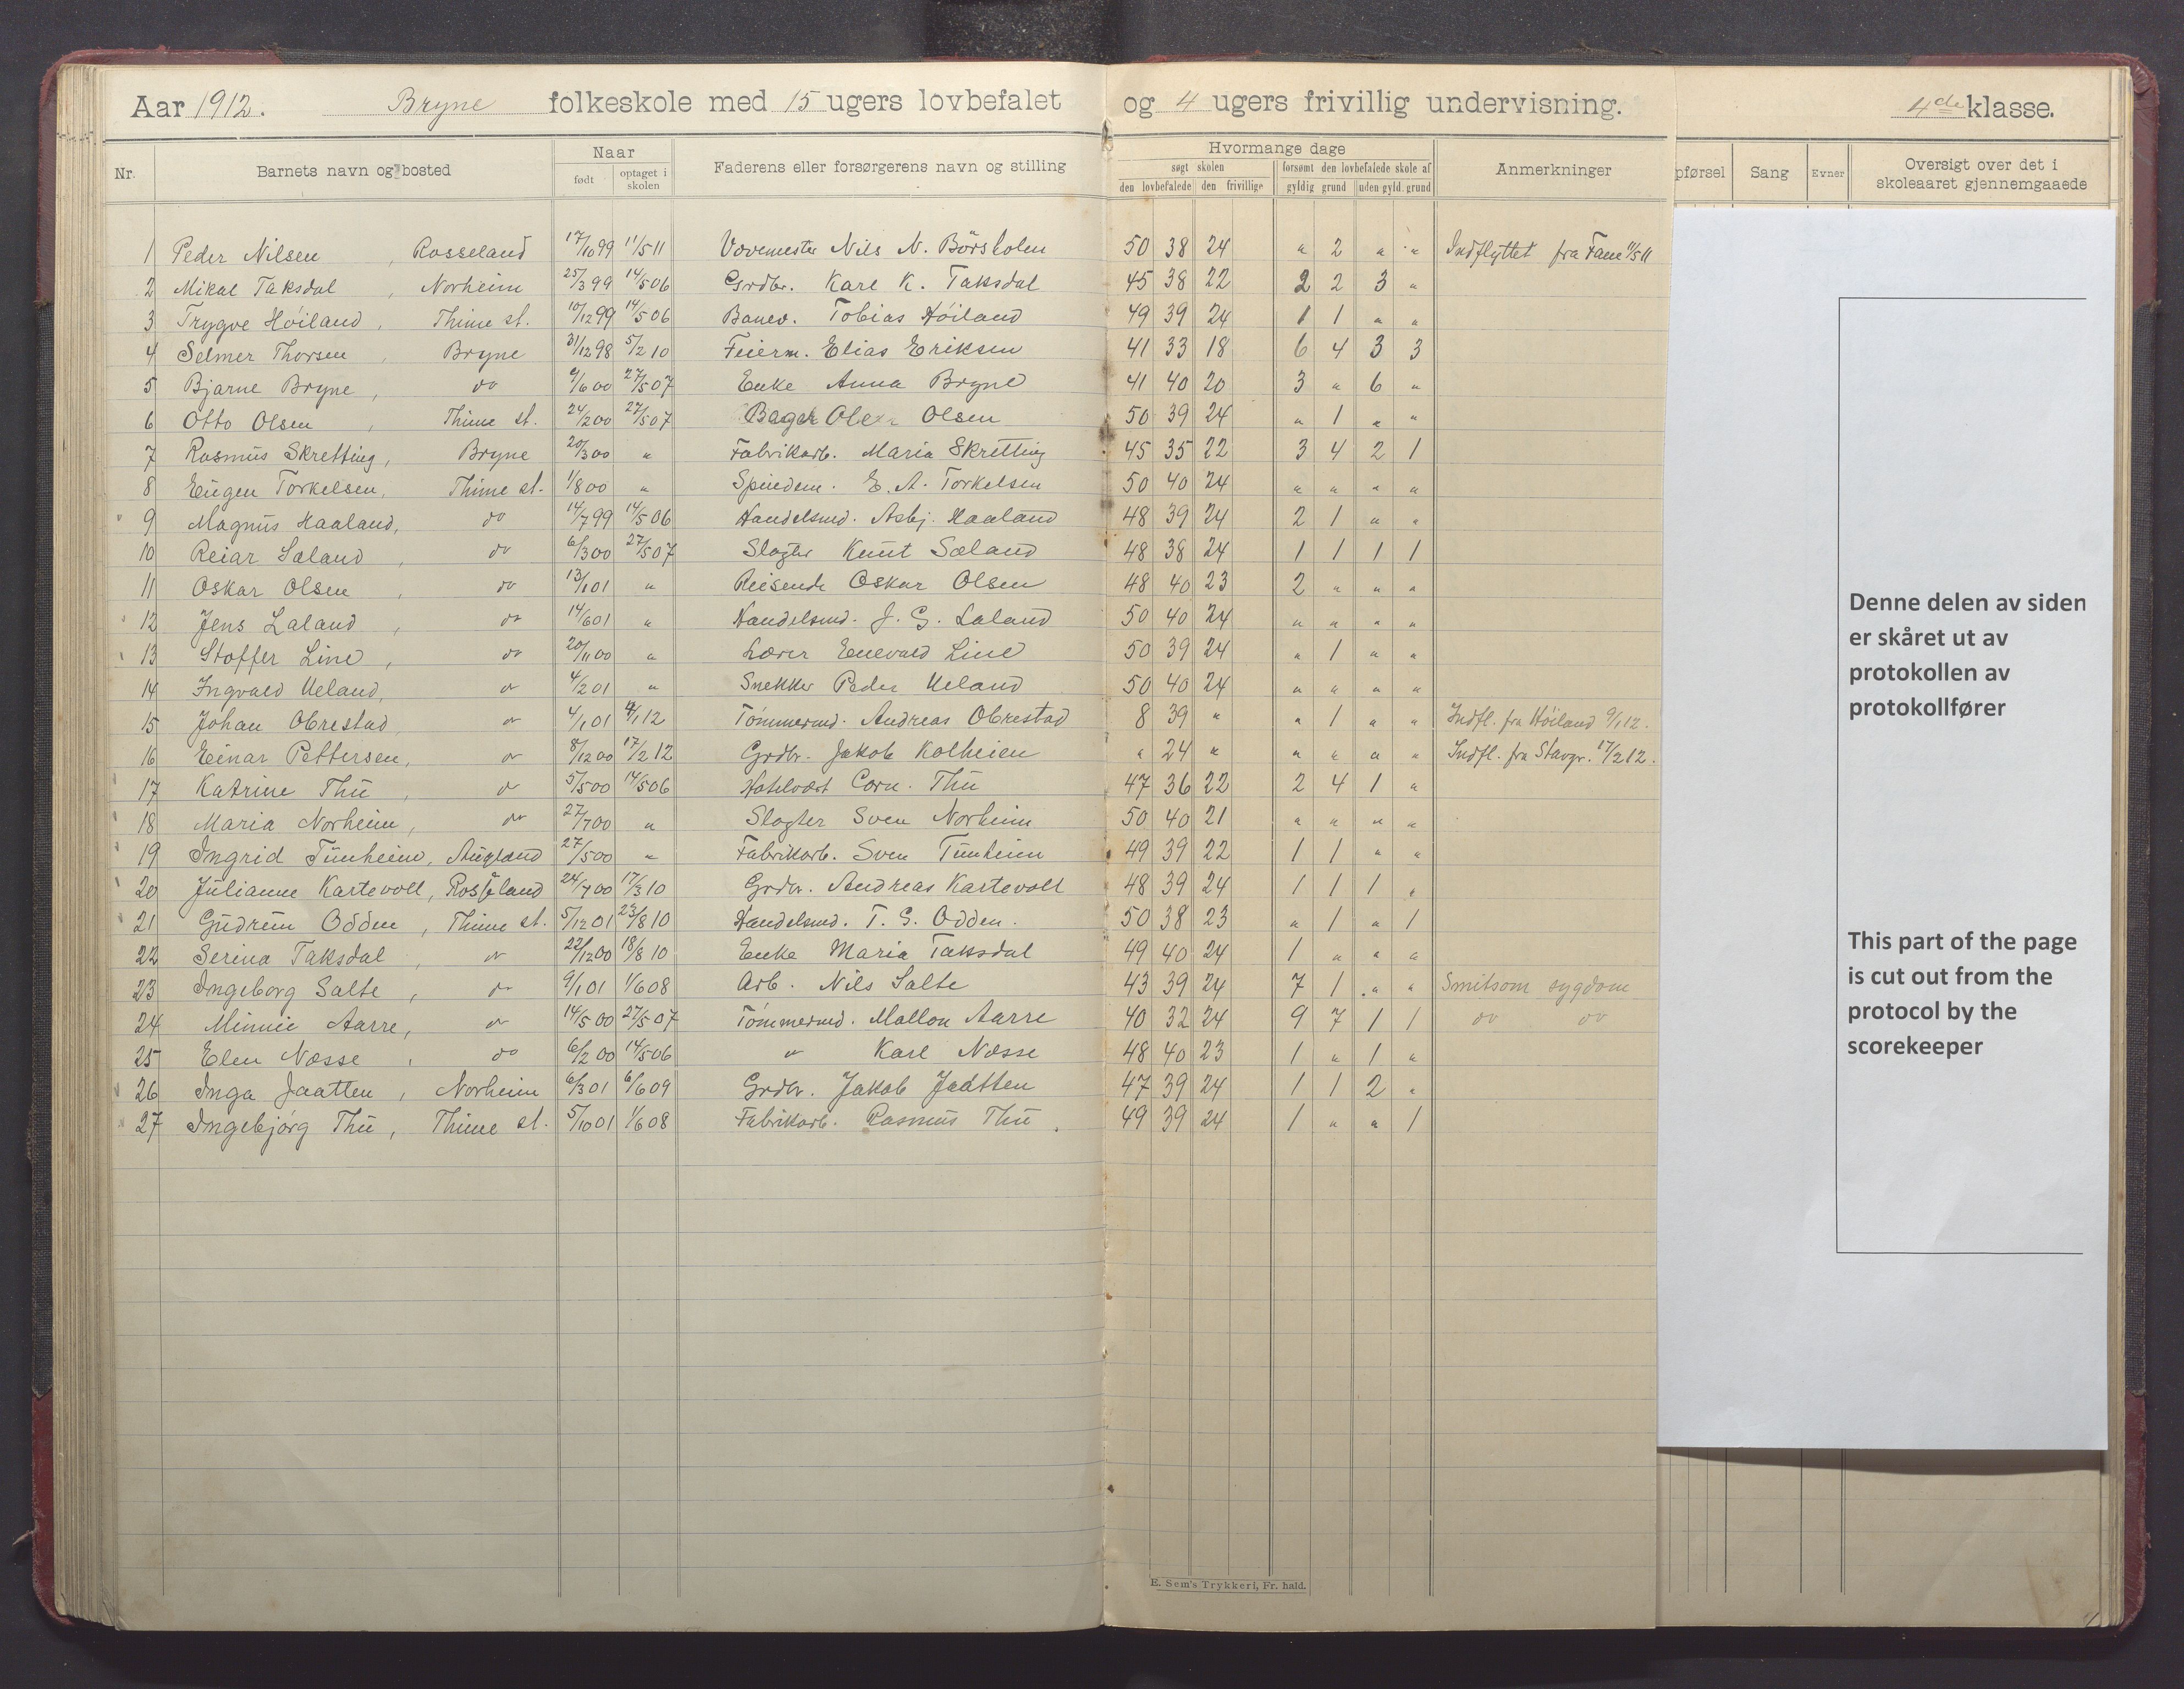 Aar 1912. Bryne folkeskole med 15 ugers lovbefalet og 4 ugers frivillig undervisning. 4de klasse.
Nr. Barnets navn og bosted Naar født optaget i skolen Faderens eller forsørgerens navn og stilling Hvormange dage søgt skolen den lovbefalede den frivillige forsømt den lovbefalede skole af gyldig grund uden gyld. grund Anmerkninger pførsel Sang Evner Oversigt over det i skoleaaret gjennemgaaede
1 Peder Nilsen, Rosseland 17/10 99 11/5 11 Vævemester Nils N. Börsholm 50 38 24 " 2 " " Indflyttet fra Fane 11/5 11
2 Mikal Taksdal, Norheim 25/3 99 14/5 06 Grdbr. Karl K. Taksdal 45 38 22 2 2 3 "
3 Trygve Höiland, Thime st. 10/12 99 14/5 06 Banev. Tobias Höiland 49 39 24 1 1 " "
4 Selmer Thorsen, Bryne 31/12 98 5/2 10 Feierm. Elias Eriksen 41 33 18 6 4 3 3
5 Bjarne Bryne, do 9/6 00 27/5 07 Enke Anna Bryne 41 40 20 3 " 6 "
6 Otto Olsen, Thime st. 24/2 00 27/5 07 Bager Olsen 50 39 24 " 1 " "
7 Rasmus Skretting, Bryne 20/3 00 " Fabrikarb. Maria Skretting 45 35 22 3 4 2 1
8 Eugen Torkelsen, Thime st. 1/8 00 " Spindem. E. A. Torkelsen 50 40 24 " " " "
9 Magnus Haaland, do 14/7 99 14/5 06 Handelsmd. Asbj. Haaland 48 39 24 2 1 " "
10 Reiar Sæland, do 6/3 00 27/5 07 Slagter Knut Sæland 48 38 24 1 1 1 1
11 Oskar Olsen, do 13/1 01 " Reisende Oskar Olsen 48 40 23 2 " " "
12 Jens Laland, do 14/6 01 " Handelsmd. J. G. Laland 50 40 24 " " " "
13 Stoffer Line, do 20/11 00 " Lærer Enevald Line 50 39 24 " 1 " "
14 Ingvald Ueland, do 4/2 01 " Snekker Peder Ueland 50 40 24 " " " "
15 Johan Obrestad, do 4/1 01 9/1 12 Tömmermd. Andreas Obrestad 8 39 " " 1 " " Indfl. fra Höiland 9/1 12.
16 Einar Pettersen, do 8/12 00 17/2 12 Grdbr. Jakob Kolheien " 24 " " " " " Indfl. fra Stavgr. 17/2 12.
17 Katrine Thu, do 5/5 00 14/5 06 Hotelvært Corn. Thu 47 36 22 2 4 1 "
18 Maria Norheim, do 27/7 00 " Slagter Sven Norheim 50 40 21 " " " "
19 Ingrid Tunheim, Augland 27/5 00 " Fabrikarb. Sven Tunheim 49 39 22 1 1 " "
20 Julianne Kartevoll, Rosseland 24/7 00 17/3 10 Grdbr. Andreas Kartevoll 48 39 24 1 1 1 "
21 Gudrun Odden, Thime st. 5/12 01 23/8 10 Handelsmd. T. G. Odden. 50 38 23 " 1 " 1
22 Serina Taksdal, do 22/12 00 18/8 10 Enke Maria Taksdal 49 40 24 1 " " "
23 Ingeborg Salte, do 9/1 01 1/6 08 Arb. Nils Salte 43 39 24 7 1 " " Smitsom sygdom
24 Minnie Aarre, do 14/5 00 27/5 07 Tömmermd. Mallon Aarre 40 32 24 9 7 1 1 do do
25 Elen Næsse, do 6/2 00 14/5 06 " Karl Næsse 48 40 23 1 " 1 "
26 Inga Jaatten, Norheim 6/3 01 6/6 09 Grdbr. Jakob Jaatten 47 39 24 1 1 2 "
27 Ingebjörg Thu, Thime st. 5/10 01 1/6 08 Fabrikarb. Rasmus Thu. 49 39 24 1 " " 1
E. Sem's Trykkeri, Fr. hald.
Denne delen av siden
er skåret ut av
protokollen av
protokollfører
This part of the page
is cut out from the
protocol by the
scorekeeper